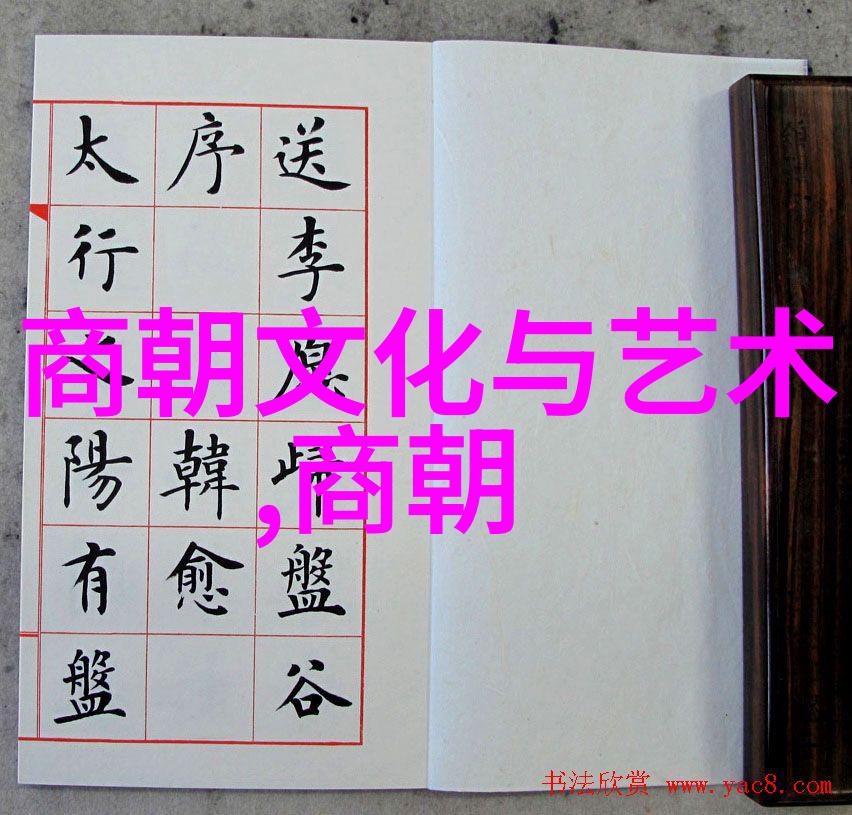 送李愿歸盤谷
序 韓愈
太行之陽有盤
商朝文化与艺术
,商朝
书法欣赏 www.yac8.com